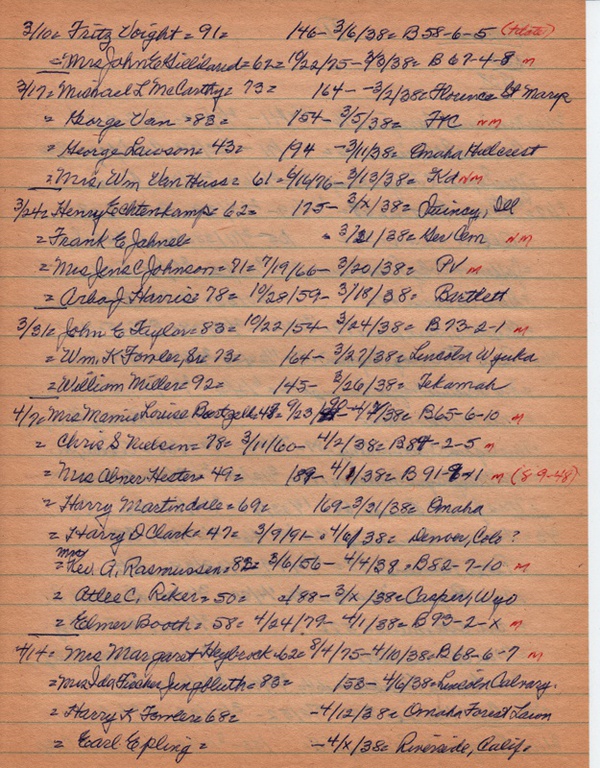 3/10 = Fritz Voight = 91 = 146 - 3/6/38 = B58-6-5 (plate)
= Mrs John E Gilliland = 62 = 10/22/75 - 3/3/38 = B 67-4-8 m
3/17 = Michael L McCarthy = 73 = 164 - -3/2/38 = Florence St Marys
= George Van = 83 = 154 - 3/5/38 = FtC NM
= George Lawson = 43 = 194 - 3/11/38 = Omaha Hillcrest
= Mrs, Wm Van Huss = 61 = 6/16/76 - 3/13/38 = Kd NM
3/24 = Henry Echtenkamp = 62 = 175 - 3/x/38 = Quincy, Ill
= Frank E Jahnel = = 3/21/38 = Ger Cem NM
= Mrs Jens C Johnson = 71 = 7/19/66 - 3/20/38 = PV m
= Arba J Harris = 78 = 10/28/59 - 3/18/38 = Bartlett
3/31 = John E Taylor = 83 = 10/22/54 - 3/24/38 = B73-2-1 m
= Wm. K Fowler, Sr = 73 = 164 - 3/27/38 = Lincoln Wyuka
= William Miller = 92 = 145 - 3/26/38 = Tekamah
4/7 = Mrs Mamie Louise 9/23/ /38 = B65-6-10 m
= Chris S Nielsen = 78 = 3/11/60 - 4/2/38 = B84-2-5 m
= Mrs Abner Hester = 49 = 189 - 4/1/38 = B 91-9-11 m (8-9-48)
= Harry Martindale = 69 = 169 - 3/31/38 = Omaha
= Harry D Clark = 47 = 3/9/91 - 4/6/38 = Denver, Colo ?
= Mrs Rev. A. Rasmussen = 82 = 3/6/56 - 4/4/38 = B82-7-10 m
= Atlee C, Riker = 50 = 188 - 3/x/38 = Casper, Wyo
= Elmer Booth = 58 = 4/24/79 - 4/1/38 = B93-2-x m
4/14 = Mrs Margaret Heybrock = 62 = 8/4/75 - 4/10/38 = B68-6-7 m
= Mrs Ida Fischer Jungbluth = 83 = 155 - 4/6/38 = Lincoln Calvary.
= Harry K Fowler = 68 = - 4/12/38 = Omaha Forest Lawn
= Earl Epling = - 4/x/38 = Riverside, Calif.